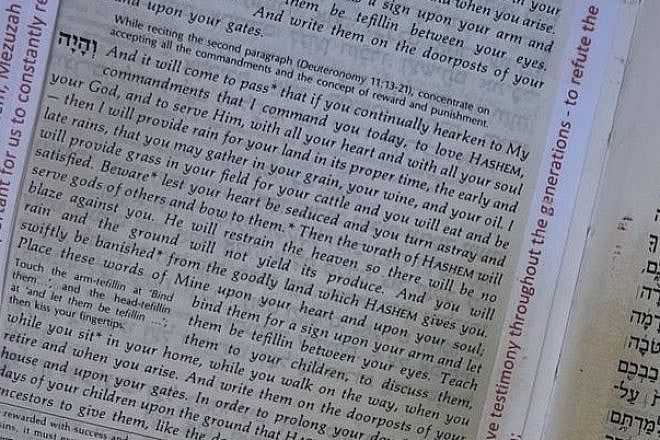 a sign upon your arm and
them be tefillin between your eyes.
and when you arise.
and upon your gates. And write them on the doorposts of your
While reciting the second paragraph (Deuteronomy 11:13-21), concentrate on
accepting all the commandments and the concept of reward and punishment.
וְהָיָה And it will come to pass* that if you continually hearken to My
commandments that I command you today, to love HASHEM,
your God, and to serve Him, with all your heart and with all your soul
– then I will provide rain for your land in its proper time, the early and
late rains, that you may gather in your grain, your wine, and your oil. I
will provide grass in your field for your cattle and you will eat and be
satisfied. Beware* lest your heart be seduced and you turn astray and
serve gods of others and bow to them.* Then the wrath of HASHEM will
blaze against you. He will restrain the heaven so there will be no
rain and the ground will not yield its produce. And you will
swiftly be banished* from the goodly land which HASHEM gives you.
Place these words of Mine upon your heart and upon your soul;
Touch the arm-tefillin at 'Bind
them ...' and the head-tefillin
at 'and let them be tefillin ...';
then kiss your fingertips.
bind them for a sign upon your arm and let
them be tefillin between your eyes. Teach
them to your children, to discuss them,
while you sit* in your home, while you walk on the way, when you
retire and when you arise. And write them on the doorposts of your
house and upon your gates. In order to prolong your
days of your children upon the ground that
ancestors to give them, like the
rewarded with success and
it must
Mezuzah
for us to constantly
testimony throughout the generations - to refute the
עַל־